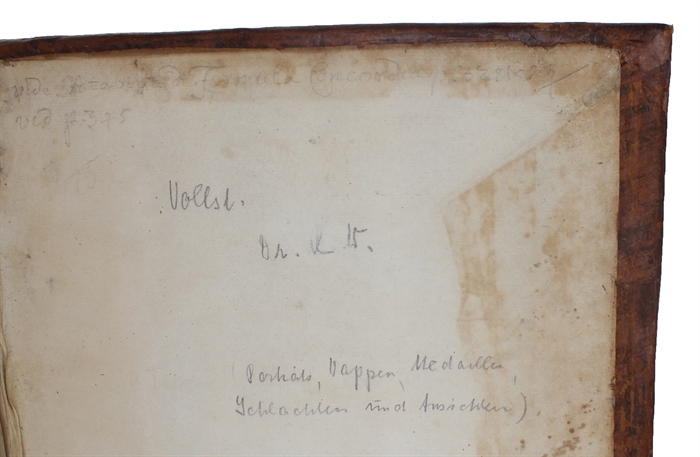 vide
Formula Concordiae p.
vid p. 345
Vollst.
Dr. K W.
(Porträts, Wappen, Medaillen,
Schlachten und Ansichten).